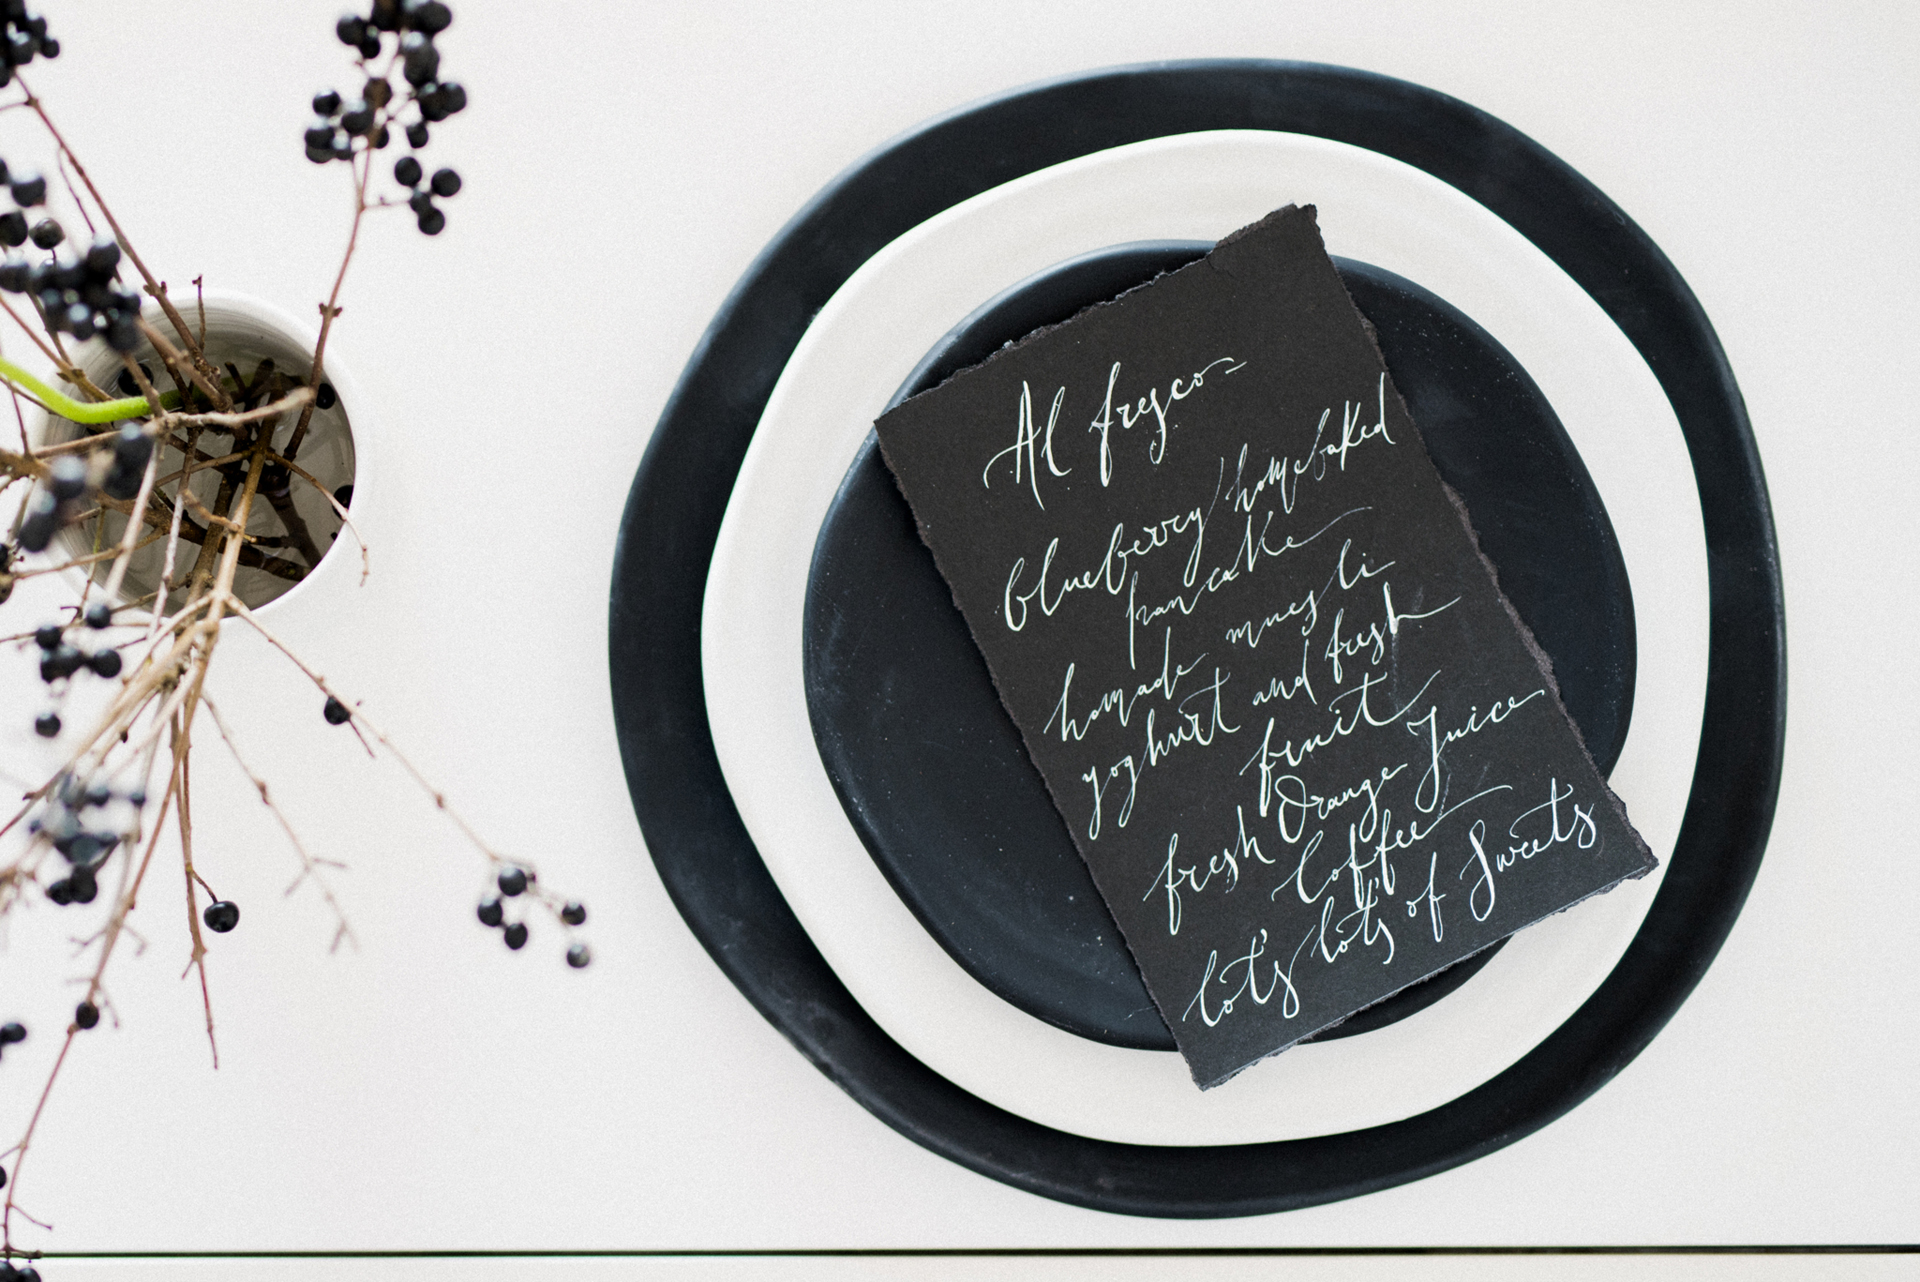 Al fresco
blueberry homebaked
pancake
homade muesli
yoghurt and fresh
fruit
fresh Orange Juice
Coffee
lot's lot's of Sweets